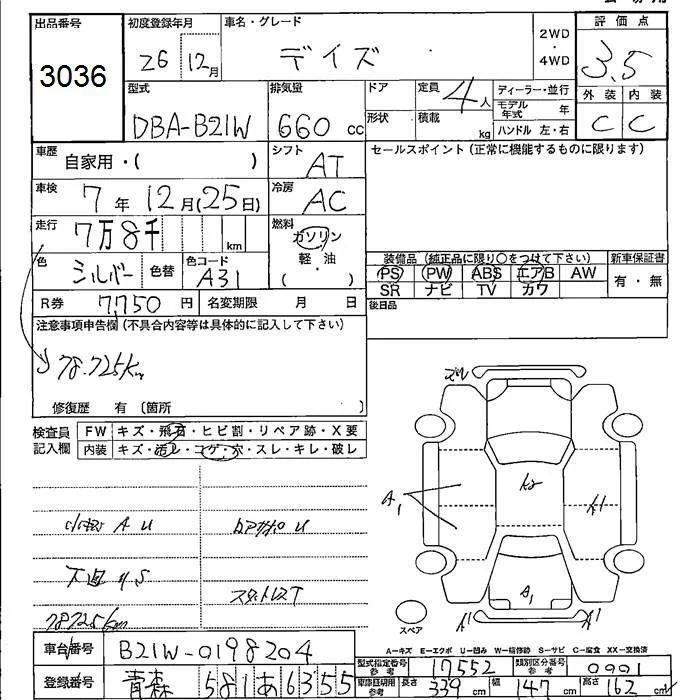 出品番号
3036
初度登録年月
26 12月
車名・グレード
デイズ
2WD
・
4WD
評価点
3.5
外装 内装
C C
型式
DBA-B21W
排気量
660 cc
ドア
形状
定員
4人
積載
kg
ディーラー・並行
モデル年式 年
ハンドル 左・右
車歴
自家用・( )
シフト
AT
セールスポイント(正常に機能するものに限ります)
車検
7年 12月(25日)
冷房
AC
走行
7万8千 km
燃料
ガソリン
軽・油
( )
色
シルバー
色替
色コード
A31
装備品 (純正品に限り○をつけて下さい)
PS PW ABS エアB AW
SR ナビ TV カワ
新車保証書
有・無
R券 7,750円
名変期限 月 日
後日品
注意事項申告欄(不具合内容等は具体的に記入して下さい)
78.725km
修復歴 有 (箇所 )
検査員記入欄
FW キズ・飛石・ヒビ割・リペア跡・X要
内装 キズ・汚レ・コゲ・穴・スレ・キレ・破レ
A U
U
下廻りS
スタットレスT
78725km
ズレ
A1
A1
A1
A1
スペア
A-キズ E-エクボ U-凹み W-補修跡 S-サビ C-腐食 XX-交換済
車台番号
B21W-0198204
登録番号
青森 581 あ6355
型式指定番号 参考
17552
類別区分番号 参考
0001
車庫証明用 参考
長さ 339cm 幅 147cm 高さ 162cm